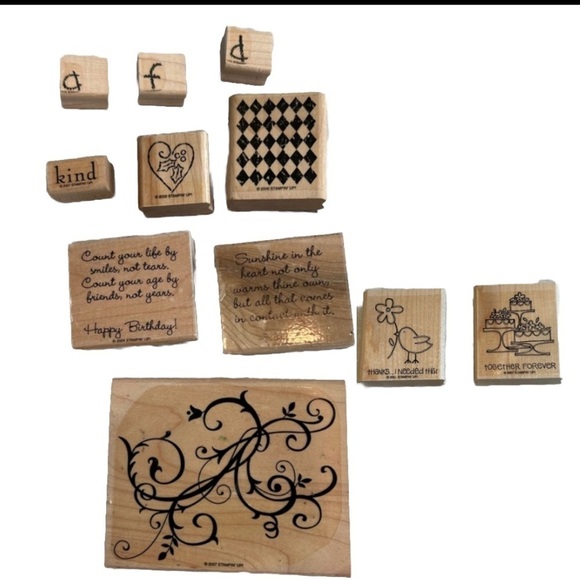 a
f
d
kind
Count your life by
smiles, not tears.
Count your age by
friends, not years.
Happy Birthday!
Sunshine in the
heart not only
warms thine own,
but all that comes
in contact with it.
thanks...i needed this!
together forever
© 2007 STAMPIN' UP!